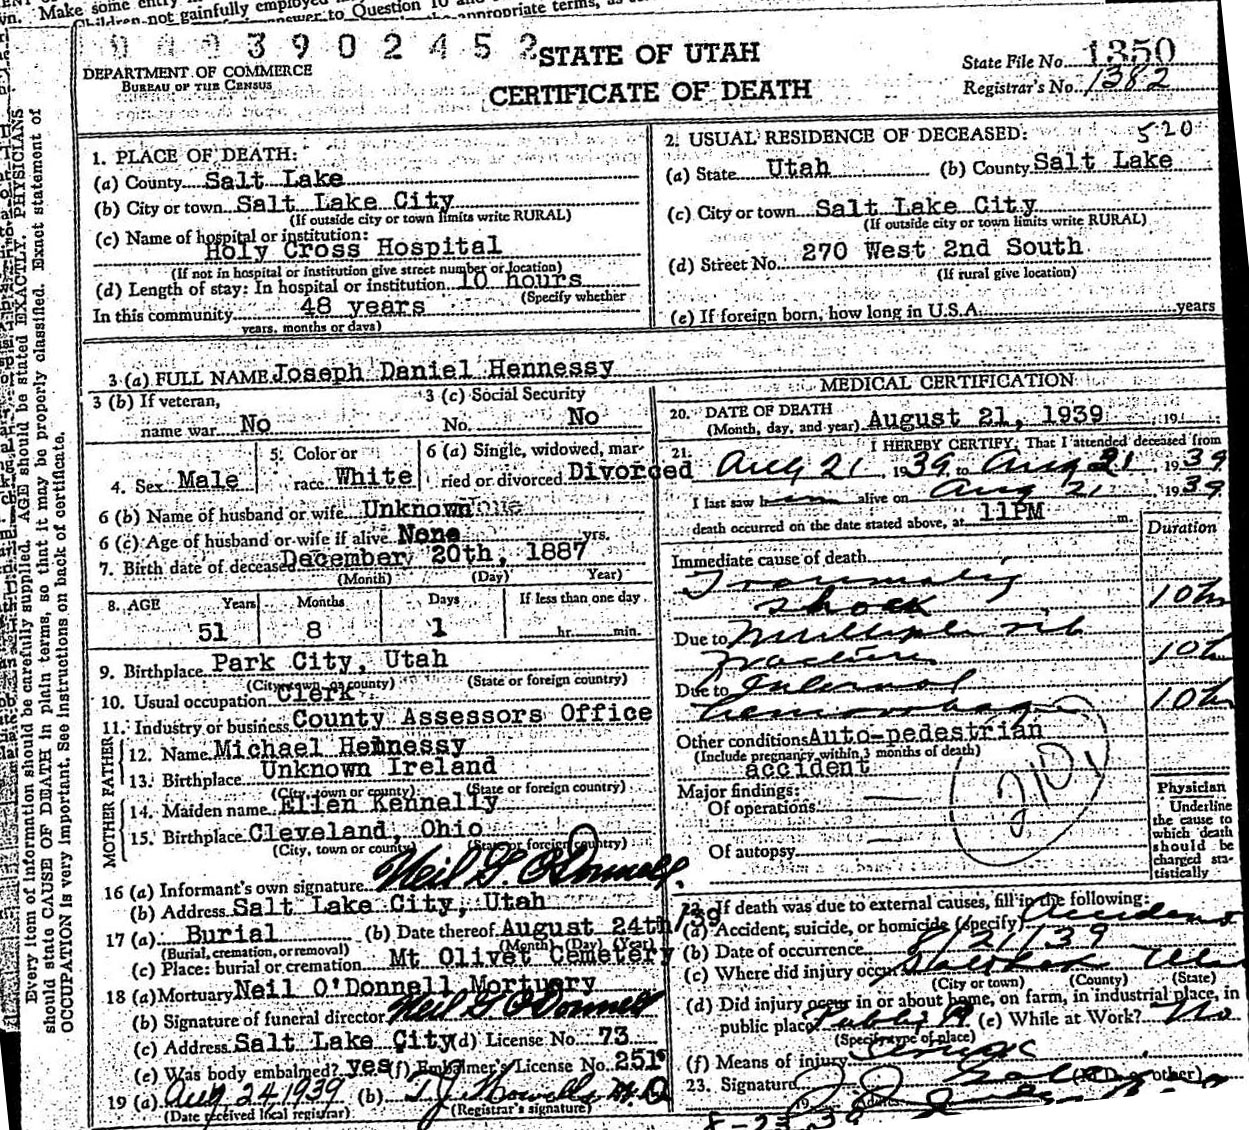 wn. Make some entry in
Children not gainfully employed
answer to Question 10 and
the appropriate terms, as
Every item of information should be carefully supplied. AGE should be stated EXACTLY. PHYSICIANS
should state CAUSE OF DEATH in plain terms, so that it may be properly classified. Exact statement of
OCCUPATION is very important. See instructions on back of certificate.
0 0 0 3 9 0 2 4 5 2
DEPARTMENT OF COMMERCE
BUREAU OF THE CENSUS
STATE OF UTAH
CERTIFICATE OF DEATH
State File No. 1350
Registrar's No. 1382
1. PLACE OF DEATH:
(a) County Salt Lake
(b) City or town Salt Lake City
(If outside city or town limits write RURAL)
(c) Name of hospital or institution:
Holy Cross Hospital
(If not in hospital or institution give street number or location)
(d) Length of stay: In hospital or institution 10 hours
(Specify whether
In this community 48 years
years, months or days)
2. USUAL RESIDENCE OF DECEASED: 520
(a) State Utah (b) County Salt Lake
(c) City or town Salt Lake City
(If outside city or town limits write RURAL)
(d) Street No. 270 West 2nd South
(If rural give location)
(e) If foreign born, how long in U.S.A. years
3 (a) FULL NAME Joseph Daniel Hennessy
3 (b) If veteran,
name war No
3 (c) Social Security
No. No
4. Sex Male
5. Color or
race White
6 (a) Single, widowed, mar-
ried or divorced Divorced
6 (b) Name of husband or wife Unknown
6 (c) Age of husband or wife if alive None yrs.
7. Birth date of deceased December 20th, 1887
(Month) (Day) Year)
8. AGE Years Months Days If less than one day
51 8 1 hr. min.
9. Birthplace Park City, Utah
(City, town or county) (State or foreign country)
10. Usual occupation Clerk
11. Industry or business County Assessors Office
FATHER
12. Name Michael Hennessy
13. Birthplace Unknown Ireland
(City, town or county) (State or foreign country)
MOTHER
14. Maiden name Ellen Kennelly
15. Birthplace Cleveland, Ohio
(City, town or county) (State or foreign country)
16 (a) Informant's own signature Neil G. O'Donnell
(b) Address Salt Lake City, Utah
17 (a) Burial (b) Date thereof August 24th/39
(Burial, cremation, or removal) (Month) (Day) (Year)
(c) Place: burial or cremation Mt Olivet Cemetery
18 (a) Mortuary Neil O'Donnell Mortuary
(b) Signature of funeral director Neil G O'Donnell
(c) Address Salt Lake City (d) License No. 73
(e) Was body embalmed? yes (f) Embalmer's License No. 251
19 (a) Aug 24 1939 (b) T J Howells M.D
(Date received local registrar) (Registrar's signature)
MEDICAL CERTIFICATION
20. DATE OF DEATH
(Month, day, and year) August 21, 1939 , 19
21. I HEREBY CERTIFY, That I attended deceased from
Aug 21 1939 to Aug 21 , 1939
I last saw him alive on Aug 21 1939
death occurred on the date stated above, at 11PM m.
Duration
Immediate cause of death
Traumatic
shock 10 hr
Due to Multiple rib
fracture 10 hr
Due to Internal
hemorrhage 10 hr
Other conditions Auto-pedestrian
(Include pregnancy within 3 months of death)
accident
Major findings:
Of operations
Of autopsy
210
Physician
Underline
the cause to
which death
should be
charged sta-
tistically
22. If death was due to external causes, fill in the following:
(a) Accident, suicide, or homicide (specify) Accident
(b) Date of occurrence 8/21/39
(c) Where did injury occur
(City or town) (County) (State)
(d) Did injury occur in or about home, on farm, in industrial place, in
public place (e) While at Work? No
(Specify type of place)
(f) Means of injury
23. Signature (M.D. or other)
8-23-39